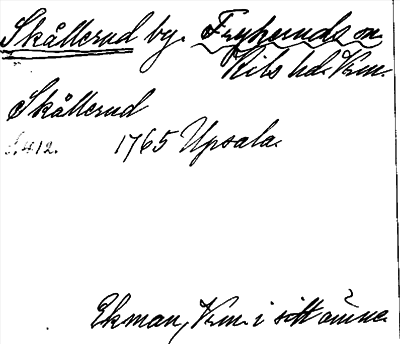 Skållerud by. Frykeruds sn.
Kils hd. Vrm.
Skållerud
s. 412. 1765 Upsala.
Ekman, Vrm. i sitt ämne.